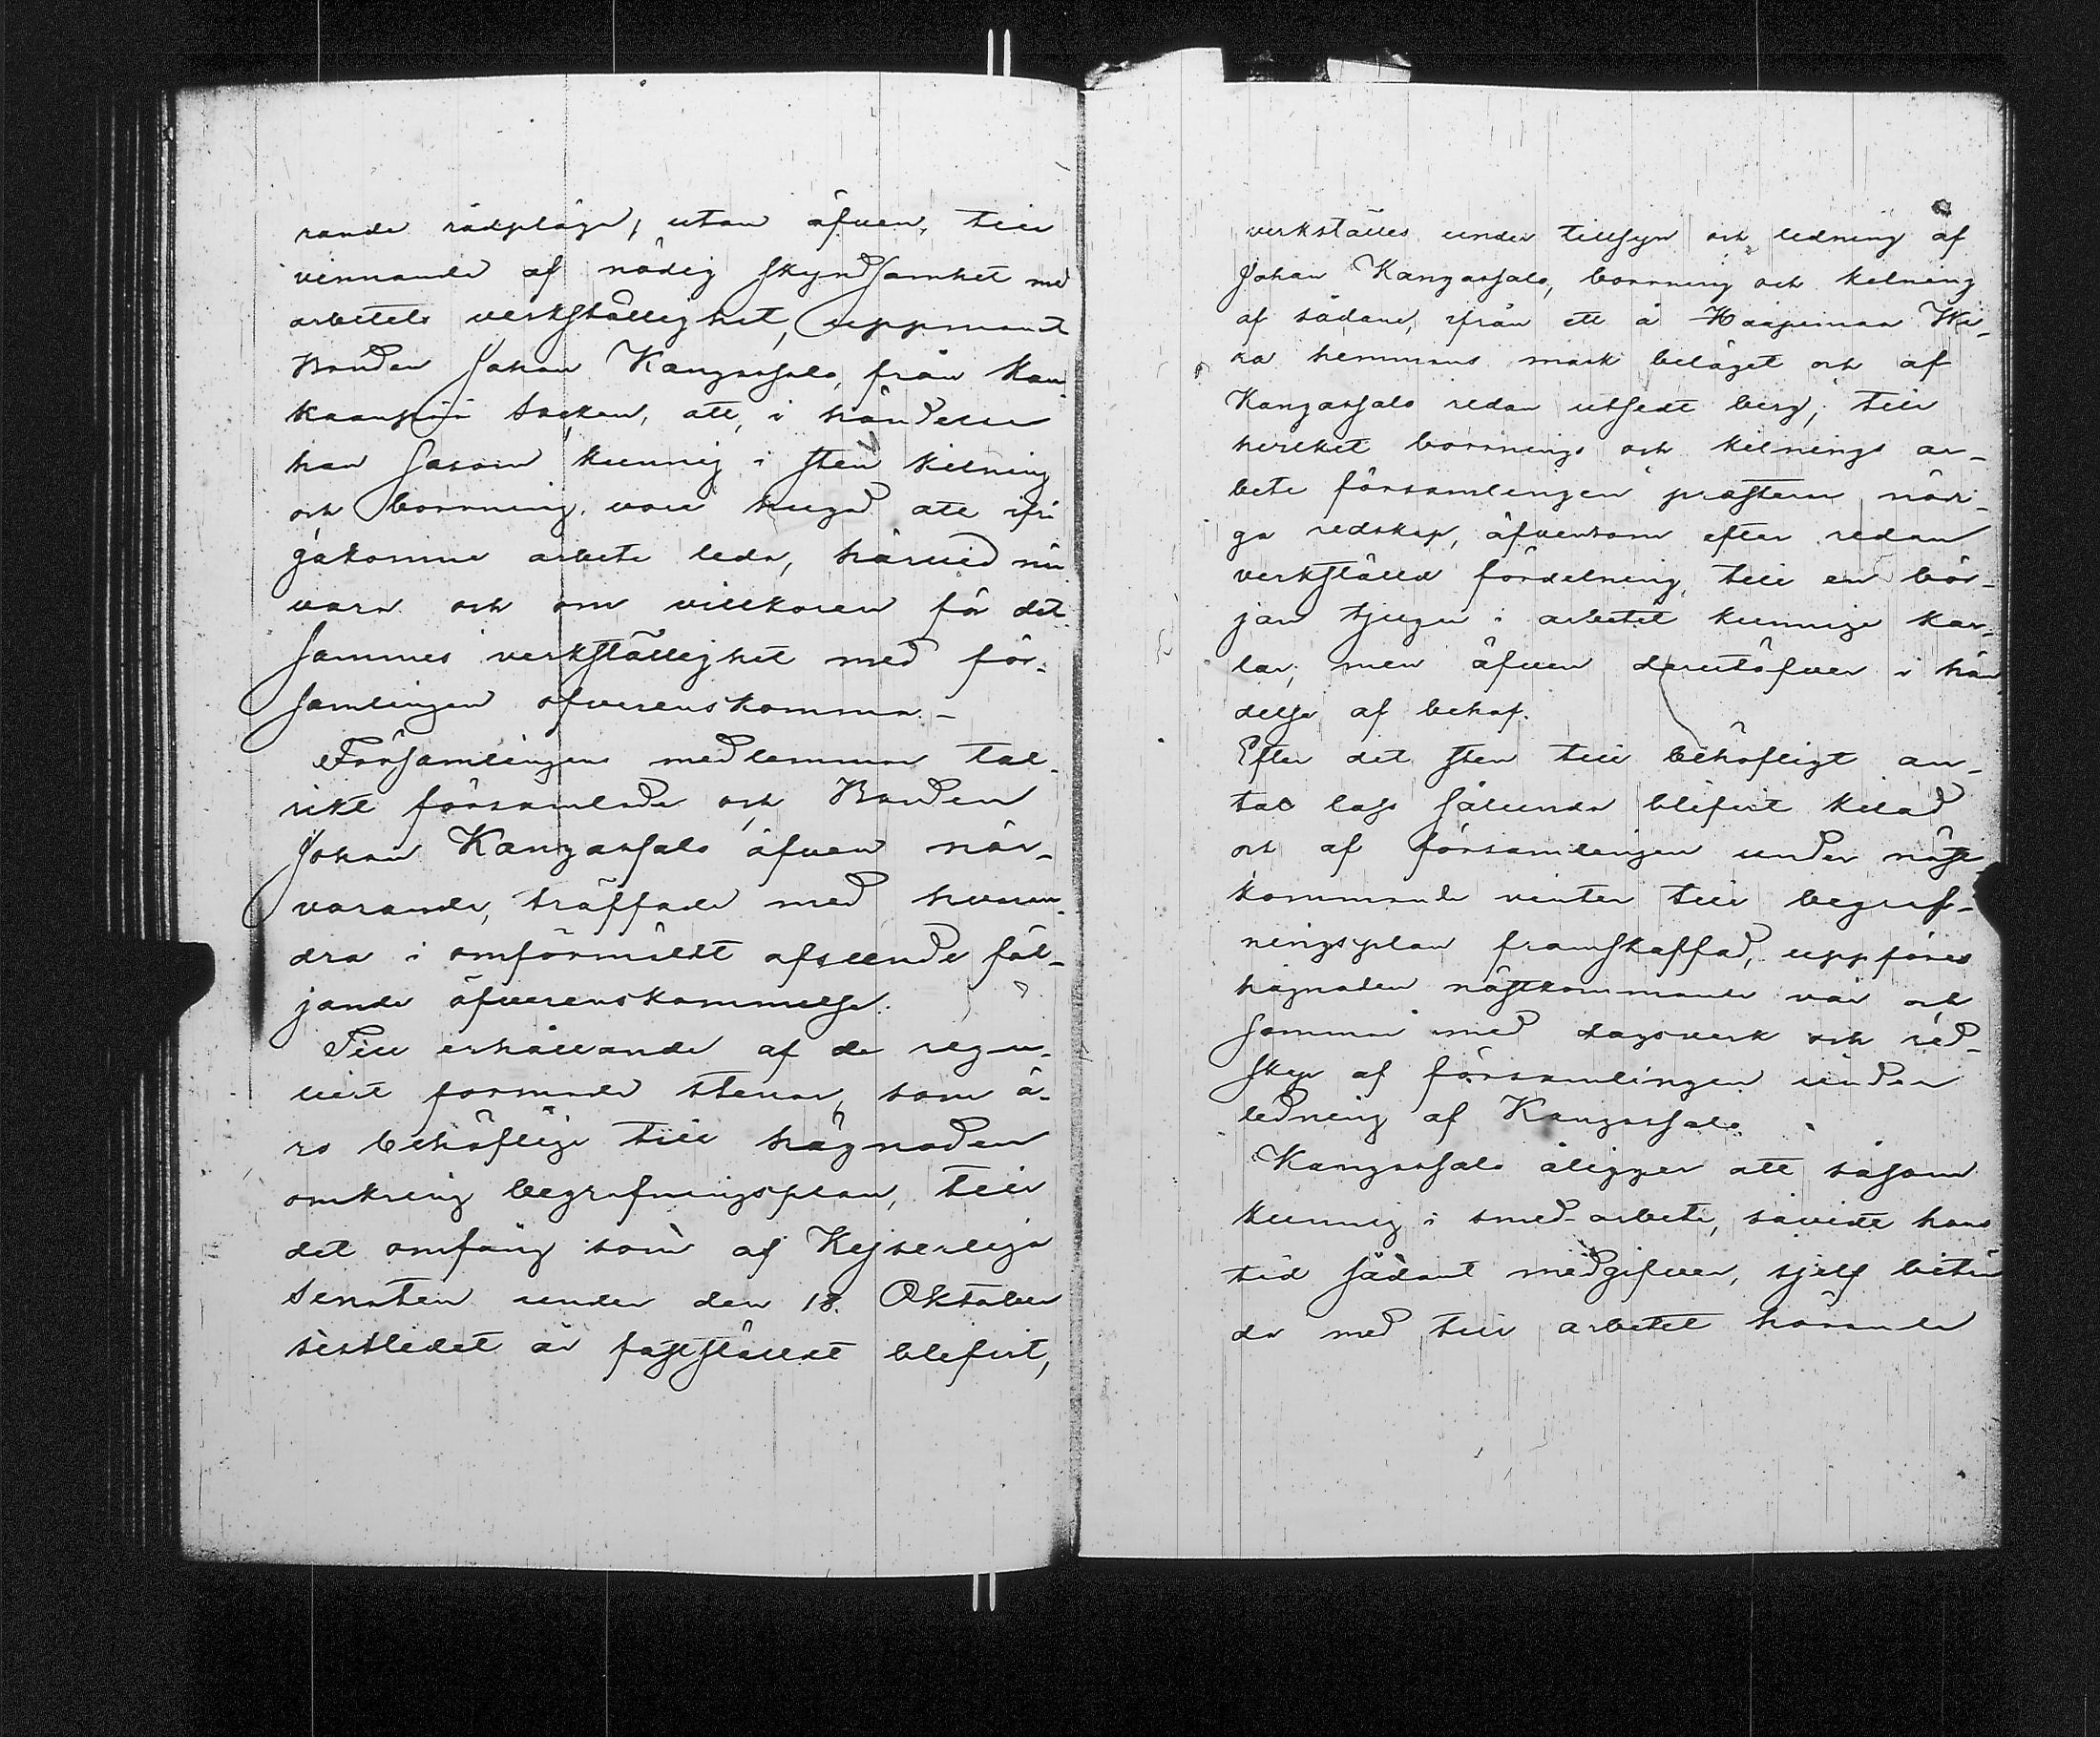 rande rådpläga, utan äfven, till
vinnande af nödig skyndsamhet med
arbetets verkställighet, uppmant
Bonden Johan Kangassalo, från Kan-
kaanpää Socken, att, i händelse
han såsom kunnig i sten kilning
och borrning, vore hugad att ifrå
gakomne arbete leda, härvid när
vara och om villkoren för det
sammas verkställighet med för-
samlingen öfverenskomma.-
Församlingens medlemmar tal-
rikt församlade och Bonden
Johan Kangassalo äfven när-
varande, träffade med hvaran-
dra i omförmäldt afseende föl-
jande öfverenskommelse.
Till erhållande af de regu-
liert formade stenar, som ä-
ro behöflige till hägnaden
omkring begrafningsplan, till
det omfång som af Kejserliga
Senaten under den 18. Oktober
sistledet år fastställdt blifvit,
verkställes under tillsyn och ledning af
Johan Kangassalo, borrning och kilning
af sådane, ifrån ett å Haapimaa
hemmans mark beläget och af
Kangassalo redan utsedt berg; till
hvilket borrnings och kilnings ar-
bete församlingen prestera nödi-
ga redskap, äfvensom efter redan
verkställd fördelning, till en bör-
jan tjugu i arbetet kunnige kar-
lar, men äfven derutöfver i hän
delse af behof.
Efter det sten till behöfligt an-
tal lass sålunda blifvit kilad
och af församlingen under näst
kommande vinter till begraf-
ningsplan framskaffad, uppföres
hägnaden nästkommande vår och
sommar med dagsverk och red-
skap af församlingen under
ledning af Kangassalo.
Kangassalo åligger att såsom
kunnig i smed-arbete, såvidt hans
tid sådant medgifver, sjelf biträ
da med till arbetet hörande